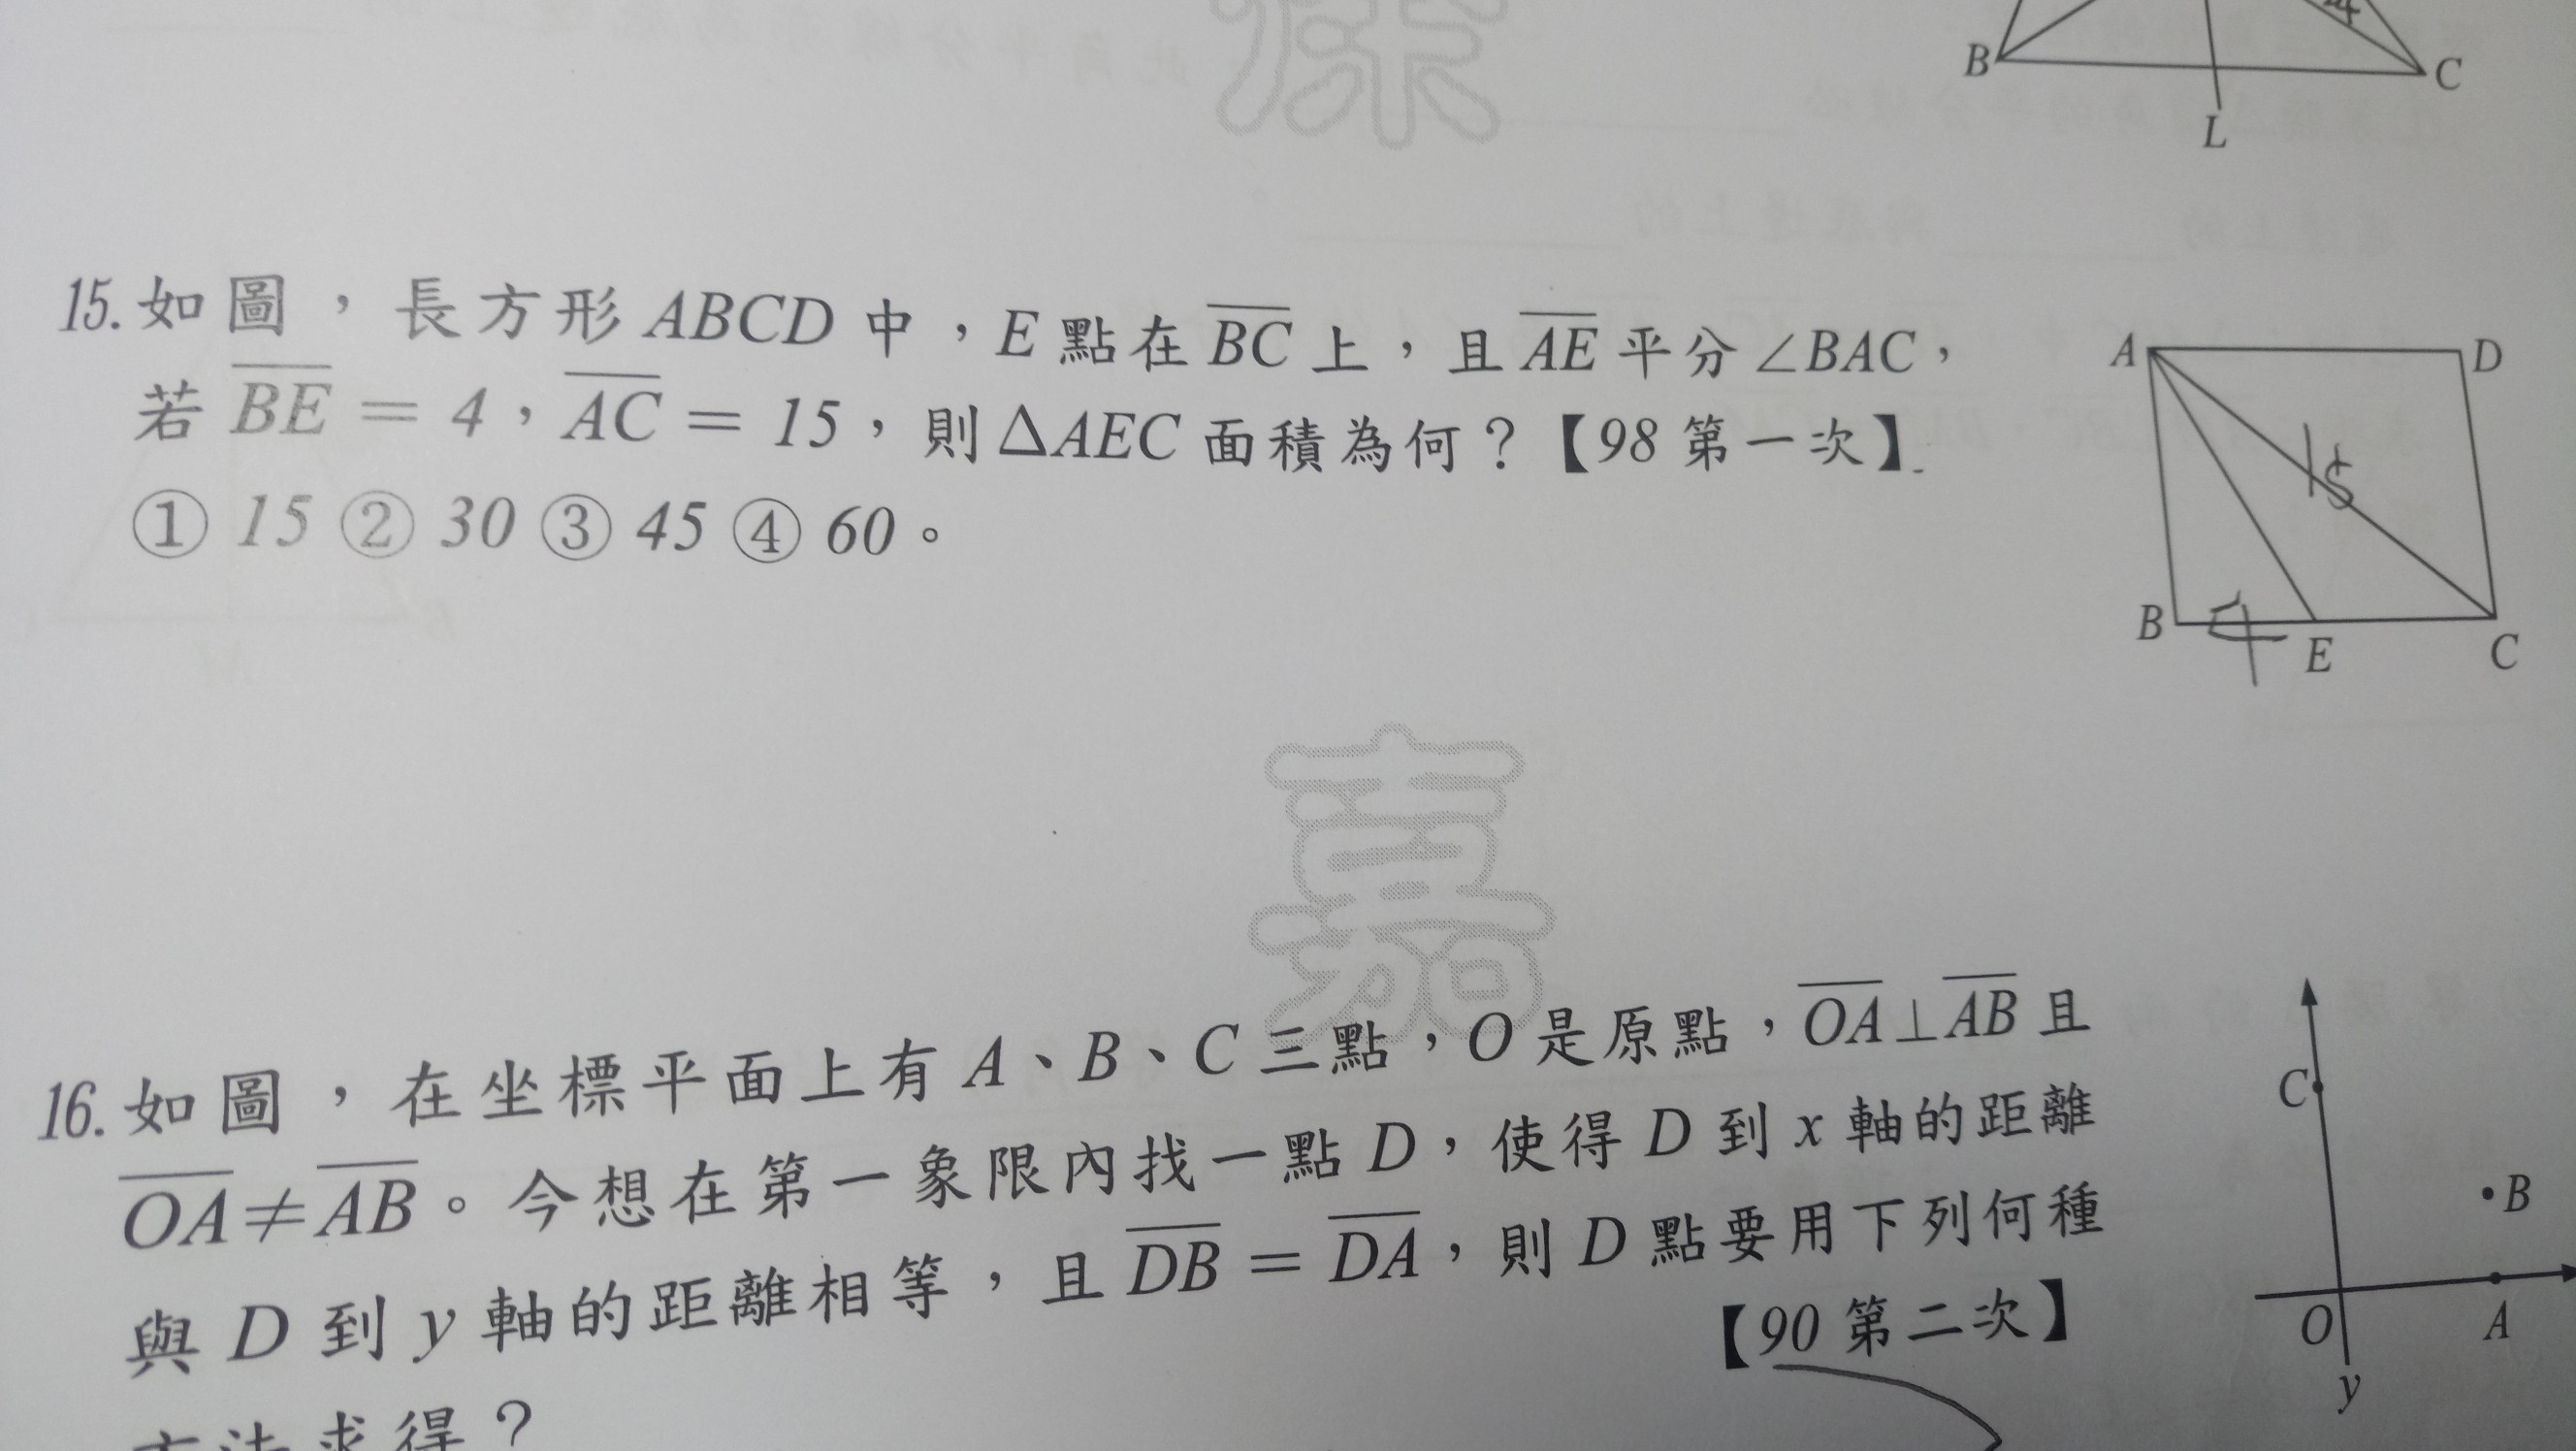 4
B
C
L
15. 如圖，長方形 ABCD 中，E 點在 BC 上，且 AE 平分 ∠BAC，
若 BE = 4，AC = 15，則 ΔAEC 面積為何？【98 第一次】
① 15 ② 30 ③ 45 ④ 60。
A
D
15
B
4
E
C
嘉
16. 如圖，在坐標平面上有 A、B、C 三點，O 是原點，OA⊥AB 且
OA≠AB。今想在第一象限內找一點 D，使得 D 到 x 軸的距離
與 D 到 y 軸的距離相等，且 DB = DA，則 D 點要用下列何種
方法求得？
【90 第二次】
C
B
O
A
y